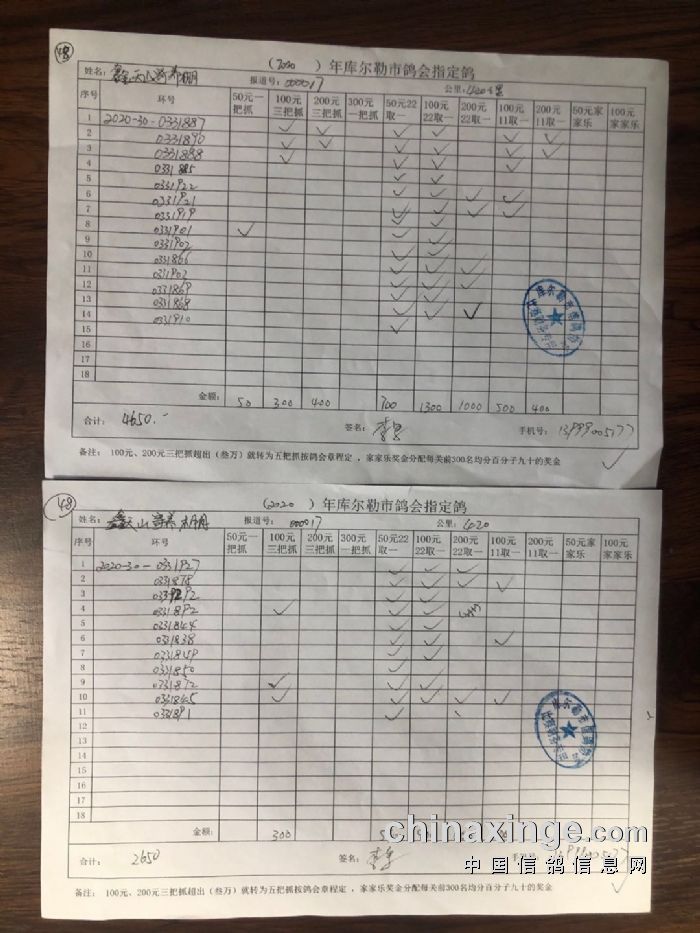 48
（2020 ）年库尔勒市鸽会指定鸽
姓名： 报道号：000017 公里：420公里
序号 环号 50元一把抓 100元三把抓 200元三把抓 300元一把抓 50元22取一 100元22取一 200元22取一 100元11取一 200元11取一 50元家家乐 100元家家乐
1 2020-30-0331887
2 0331890
3 0331888
4 0331885
5 0331922
6 0331921
7 0331919
8 0331901
9 0331902
10 0331866
11 0331903
12 0331869
13 0331868
14 0331910
15
16
17
18
金额： 50 300 400 700 1300 1000 500 400
合计： 4650.- 签名： 手机号：13999005177
备注： 100元、200元三把抓超出（叁万）就转为五把抓按鸽会章程定，家家乐奖金分配每关前300名均分百分子九十的奖金
48
（2020 ）年库尔勒市鸽会指定鸽
姓名： 报道号：000017 公里：420
序号 环号 50元一把抓 100元三把抓 200元三把抓 300元一把抓 50元22取一 100元22取一 200元22取一 100元11取一 200元11取一 50元家家乐 100元家家乐
1 2020-30-0331927
2 0331878
3
4 0331892
5 0331844
6 0331838
7 0331849
8 0331850
9 0331872
10 0331845
11 0331891
12
13
14
15
16
17
18
金额： 300
合计： 2650 签名：
备注： 100元、200元三把抓超出（叁万）就转为五把抓按鸽会章程定，家家乐奖金分配每关前300名均分百分子九十的奖金
chinaxinge.com
中国信鸽信息网